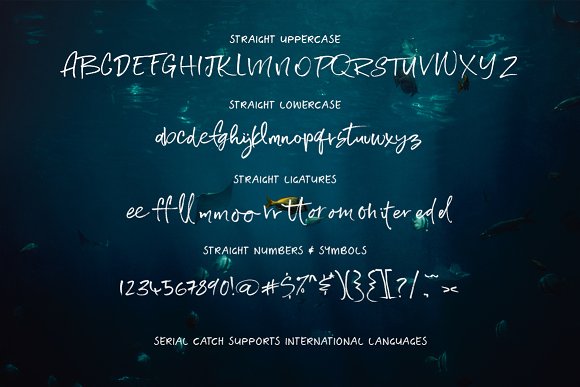 STRAIGHT UPPERCASE
ABCDEFGHIJKLMNOPQRSTUVWXYZ
STRAIGHT LOWERCASE
abcdefghijklmnopqrstuvwxyz
STRAIGHT LIGATURES
ee ff ll mm oo rr tt or om oh it er ed d
STRAIGHT NUMBERS & SYMBOLS
1234567890!@#$%^&*)({}{][?/,;~><
SERIAL CATCH SUPPORTS INTERNATIONAL LANGUAGES